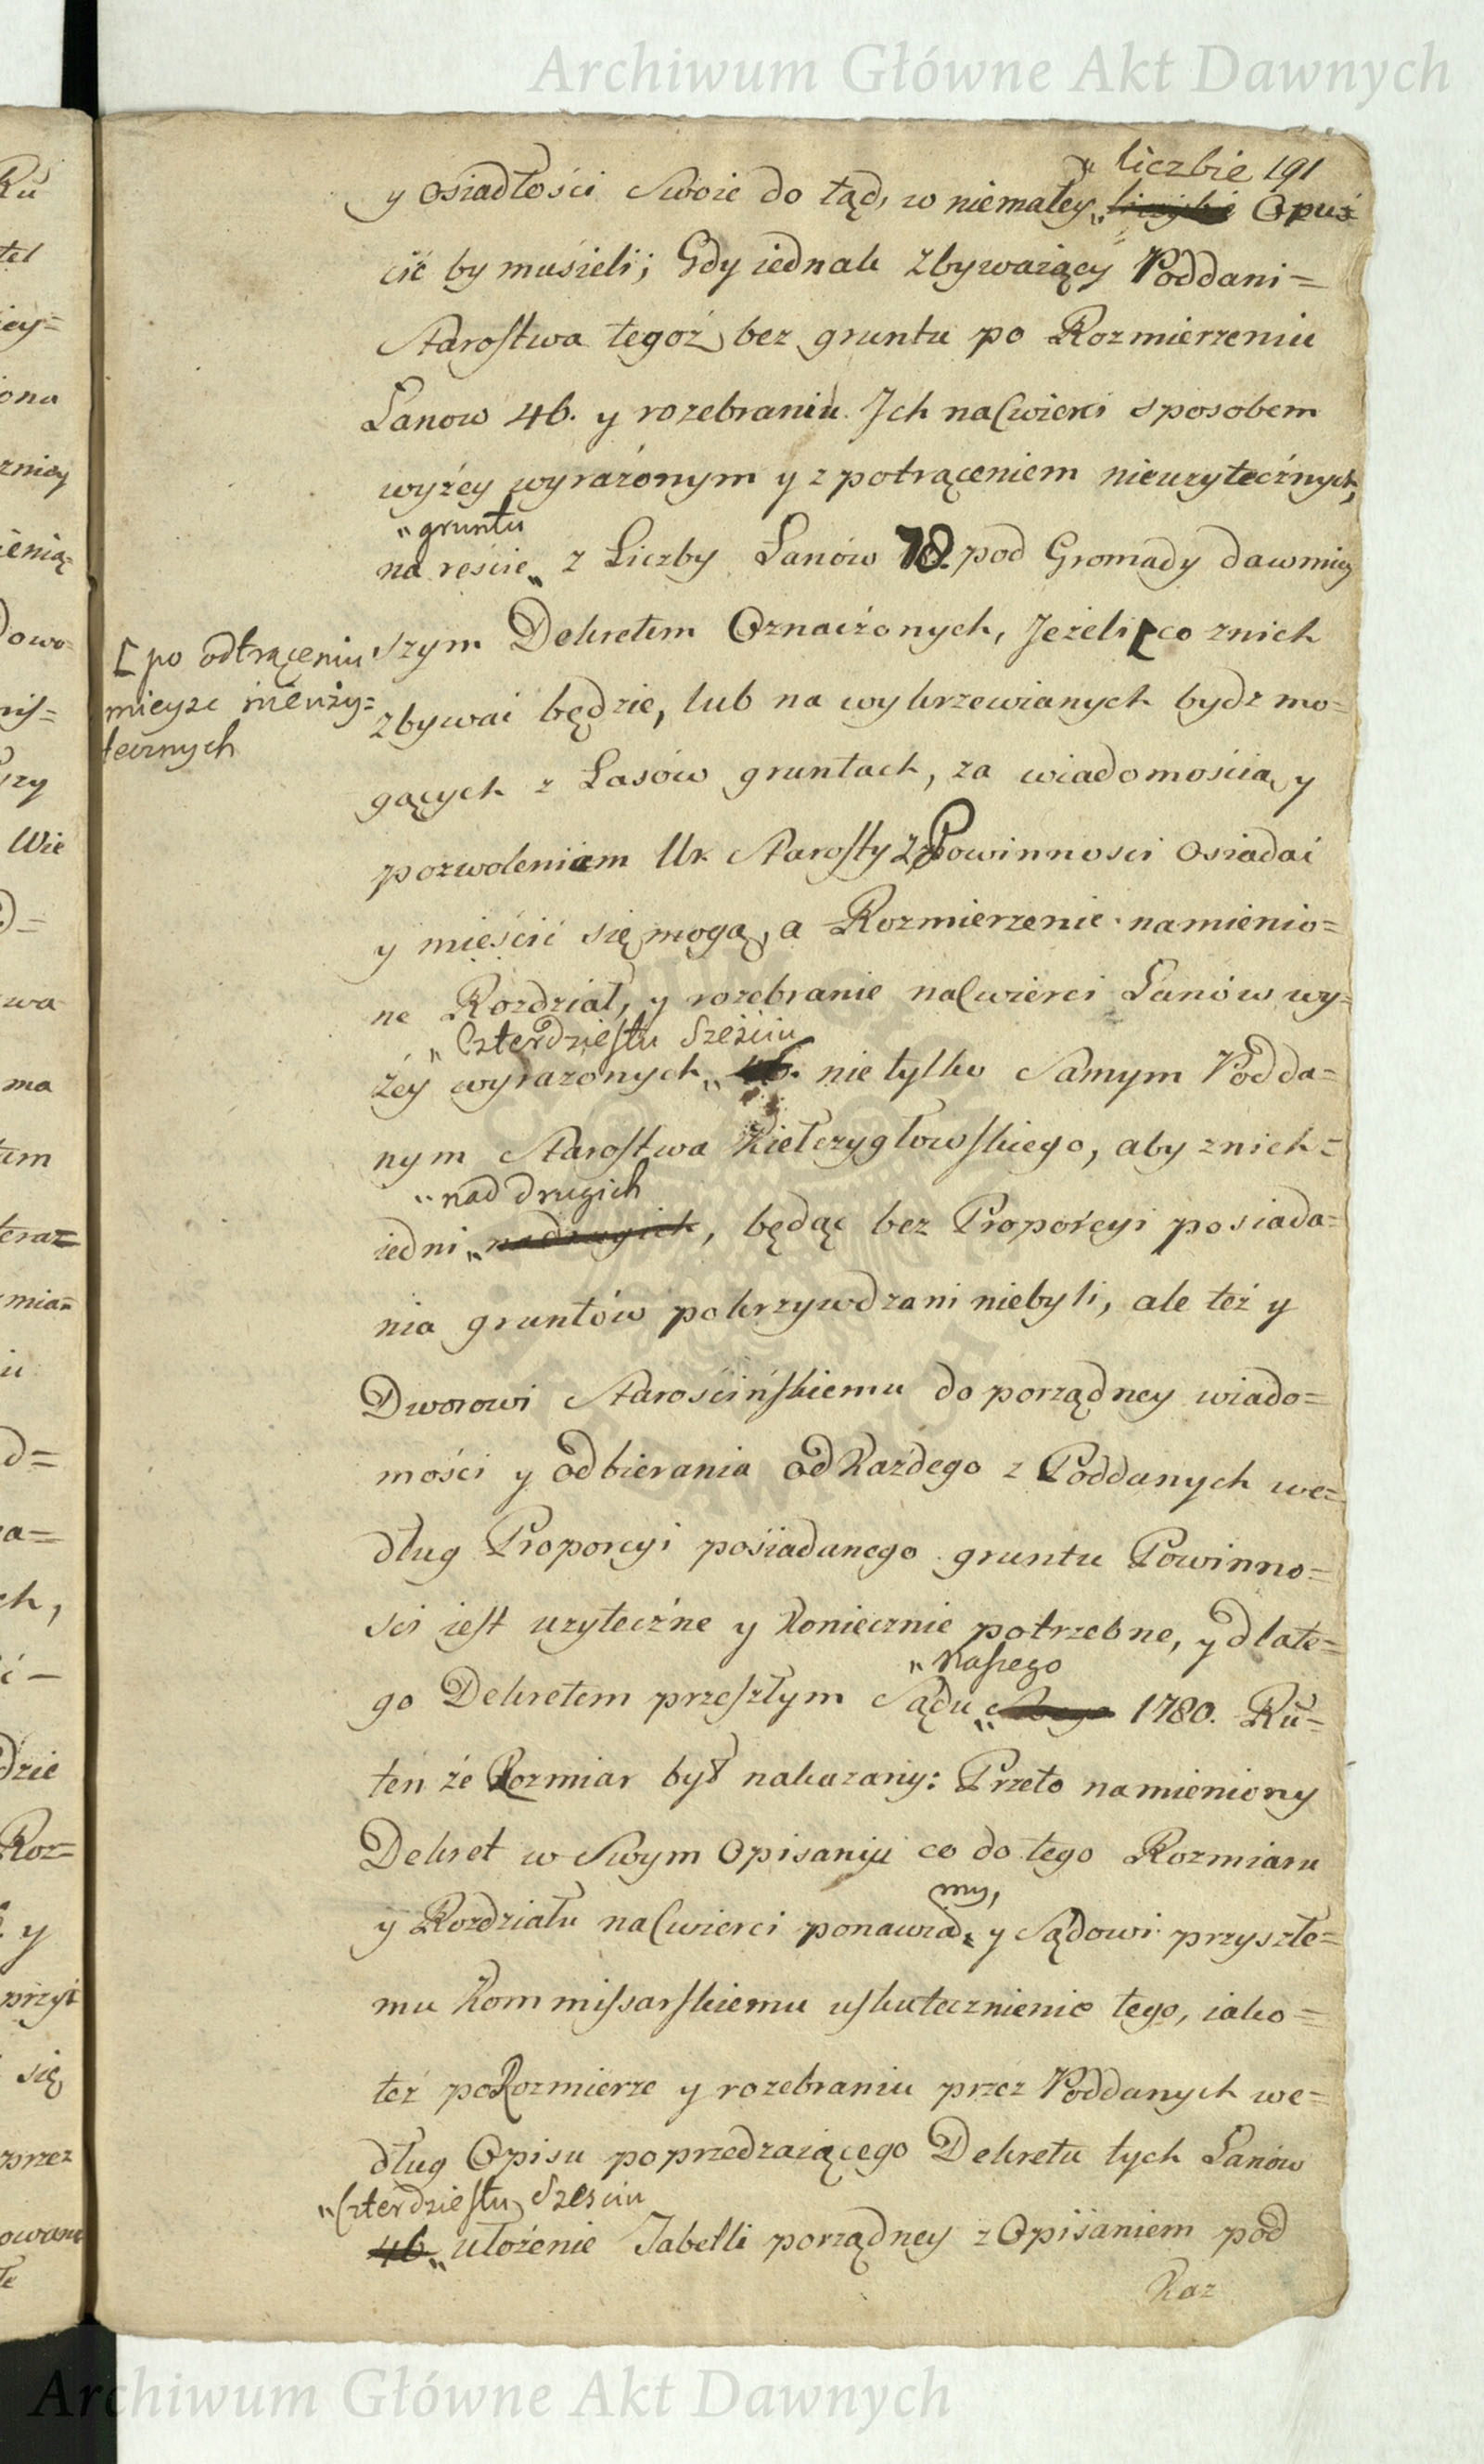 Archiwum Główne Akt Dawnych
191
„ liczbie
y osiadłości Swoie do tąd, w niemałey „ Opuś
cić by musieli; Gdy iednak zbywaiący Poddani=
Starostwa tegoż bez gruntu po Rozmierzeniu
Łanow 46. y rozebraniu Ich na Cwierci sposobem
wyżey wyrażonym y z potrąceniem nieużytecżnych,
„ gruntu
na reście „ z Liczby Łanów 78. pod Gromady dawniey
szym Dekretem Oznacżonych, Jeżeli [ co znich
[ po odtrąceniu
mieysc nieuży=
tecznych
zbywać będzie, lub na wykrzewianych bydz mo=
gących z Lasów gruntach, za wiadomościa y
pozwoleniem Ur. Starosty z Powinnosci osiadać
y mieścić się mogą, a Rozmierzenie namienio=
ne Rozdział, y rozebranie na Cwierci Łanów wy=
„ Czterdziestu Sześciu
żey wyrażonych „ 46. nie tylko Samym Podda=
nym Starostwa Kiełczygłowskiego, aby znich=
„ nad drugich
iedni „ nadrugich, będąc bez Proporcyi posiada=
nia gruntów pokrzywdzani niebyli, ale też y
Dworowi Starościńskiemu do porządney wiado=
mości y odbierania od Każdego z Poddanych we=
dług Proporcyi posiadanego gruntu Powinno=
sci iest użytecżne y Koniecznie potrzebne, y dlate=
„ Naszego
go Dekretem przeszłym Sądu „ 1780. Ru=
ten że Rozmiar był nakazany: Przeto namieniony
Dekret w Swym Opisaniu co do tego Rozmiaru
my,
y Rozdziału na Cwierci ponawia y Sądowi przyszłe=
mu Kommissarskiemu uskutecznienie tego, iako=
też po Rozmierze y rozebraniu przez Poddanych we=
dług Opisu poprzedzaiącego Dekretu tych Łanów
„ Czterdziestu Sześciu
46. „ ułożenie Tabelli porządney z Opisaniem pod
Kaz
Archiwum Główne Akt Dawnych